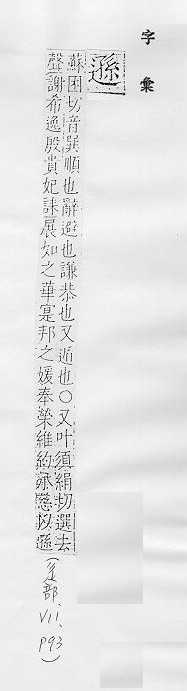 字彙
遜
蘇困切音巽順也辭避也謙恭也又遁也○又叶須絹切選去
聲謝希逸殷貴妃誄展如之華寔邦之媛奉榮維約承慈以遜
(辵部, VII, P93)